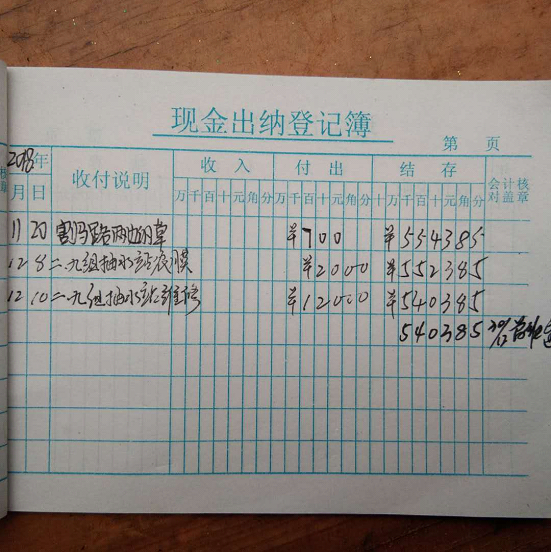 现金出纳登记簿
第 页
2018年 收付说明 收入 付出 结存 会计核对盖章
月 日 万千百十元角分 万千百十元角分 万千百十元角分
11 20 割马路两边的草 ¥700 ¥554385
12 8 二.九组抽水站 膜 ¥2000 ¥552385
12 10 二.九组抽水站维修 ¥12000 ¥540385
540385